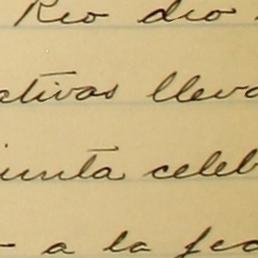 Rio dio
ativas lleva
junta celeb
a la fec